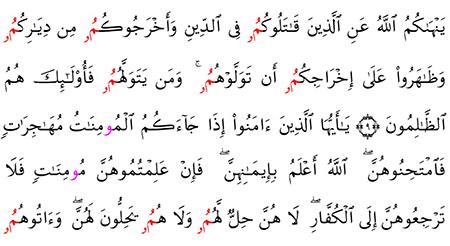 يَنْهَىٰكُمُ ٱللَّهُ عَنِ ٱلَّذِينَ قَٰتَلُوكُمُۥ فِى ٱلدِّينِ وَأَخْرَجُوكُمُۥ مِن دِيَٰرِكُمُۥ
وَظَٰهَرُوا۟ عَلَىٰٓ إِخْرَاجِكُمُۥٓ أَن تَوَلَّوْهُمُۥۚ وَمَن يَتَوَلَّهُمُۥ فَأُو۟لَٰٓئِكَ هُمُ
ٱلظَّٰلِمُونَ ۝٩ يَٰٓأَيُّهَا ٱلَّذِينَ ءَامَنُوٓا۟ إِذَا جَآءَكُمُ ٱلْمُومِنَٰتُ مُهَٰجِرَٰتٖ
فَٱمْتَحِنُوهُنَّۖ ٱللَّهُ أَعْلَمُ بِإِيمَٰنِهِنَّۖ فَإِنْ عَلِمْتُمُوهُنَّ مُومِنَٰتٖ فَلَا
تَرْجِعُوهُنَّ إِلَى ٱلْكُفَّارِۖ لَا هُنَّ حِلٌّ لَّهُمُۥ وَلَا هُمُۥ يَحِلُّونَ لَهُنَّۖ وَءَاتُوهُمُۥ